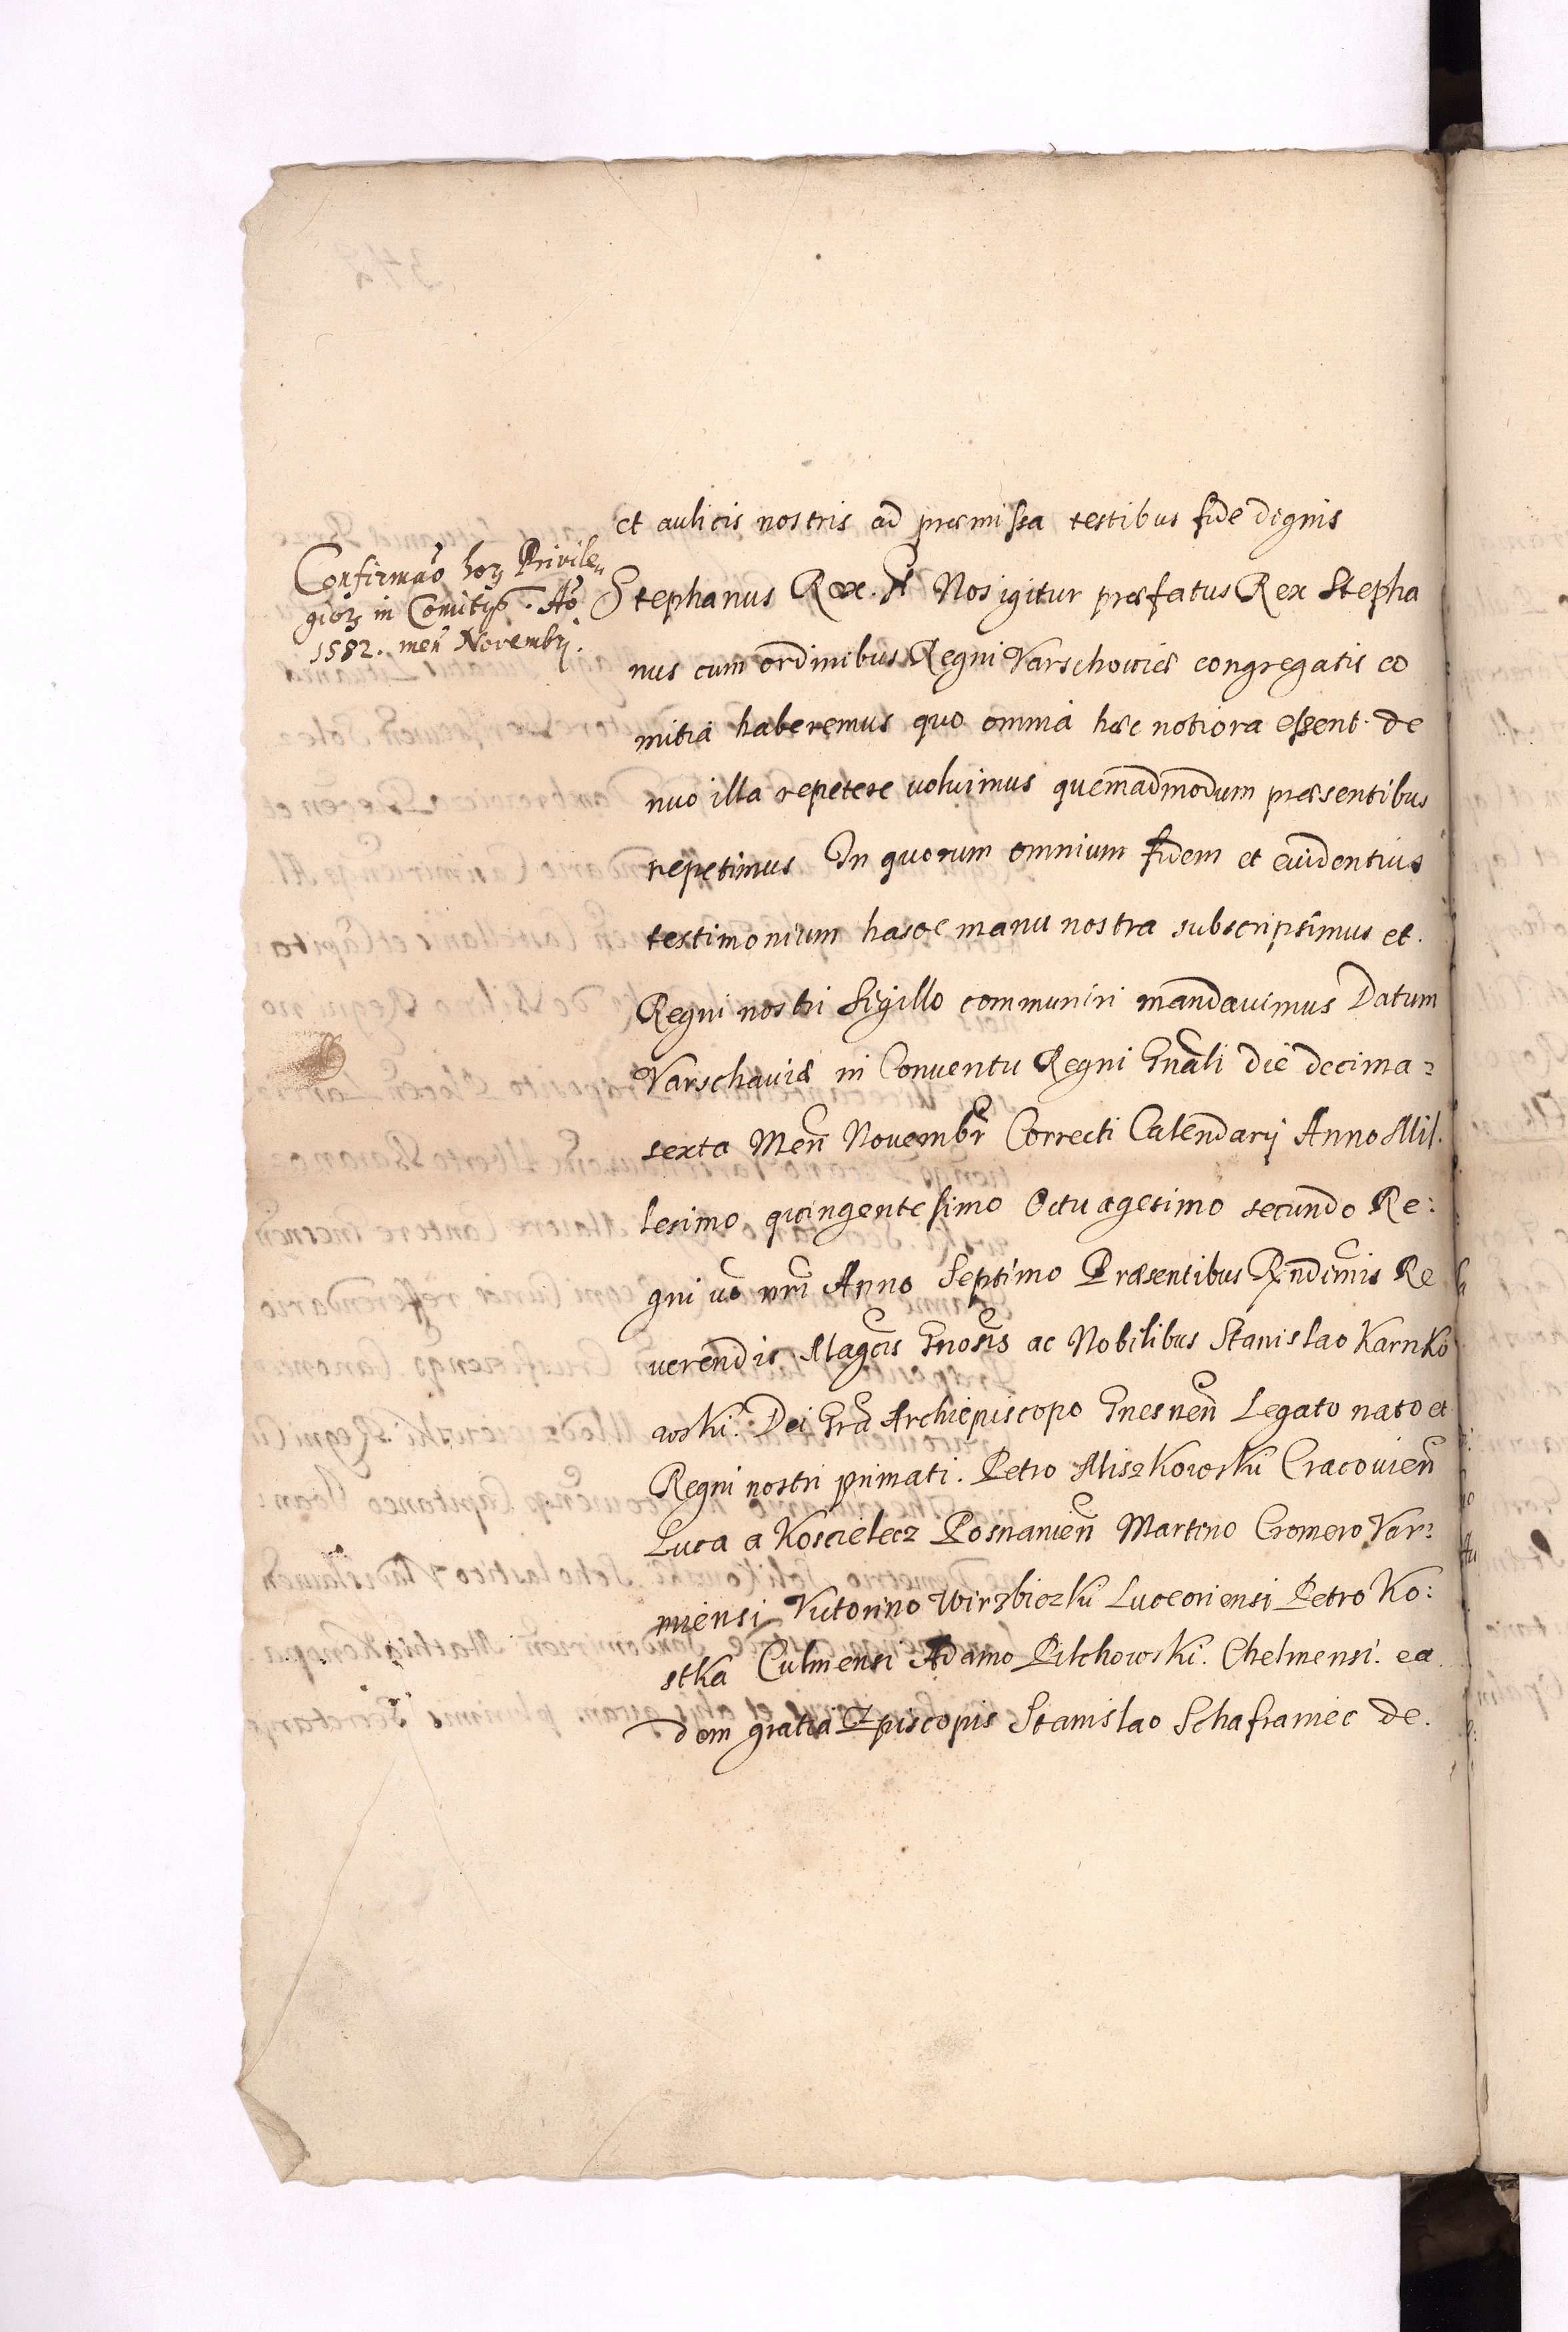 et aulicis nostris ad præmissa testibus fide dignis
Confirmaõ horʒ Privile„
giorʒ in Comitijs. Aõ
1582. meñ Novembrj.
Stephanus Rex. Nos igitur præfatus Rex Stepha
nus cum ordinibus Regni Varschoviæ congregatis co
mitia haberemus quo omnia hæc notiora essent. de
nuo illa repetere voluimus quemadmodum præsentibus
repetimus In quorum omnium fidem et evidentius
testimonium hasce manu nostra subscripsimus et.
Regni nostri Sigillo communiri mandavimus Datum
Varschaviæ in Conventu Regni Gnãli die decima=
sexta Meñ Novembr̃ Correcti Calendarij Anno Mil.
lesimo quingentesimo Octuagesimo secundo Re:
gni võ nrĩ Anno Septimo Præsentibus Rndĩmis Re
verendis Magcĩs Gnosĩs ac Nobilibus Stanislao Karnko
wski. Dei Grã Archiepiscopo Gnesneñ Legato nato et
Regni nostri primati. Petro Miszkowsku Cracovieñ
Luca a Koscielecz Posnanieñ Martino Cromero Var=
miensi Victorino Wirzbiczku Luceoriensi Petro Ko:
stka Culmensi Adamo Pilchowski. Chelmensi. ea
dem gratia Episcopis Stanislao Schafraniec de.